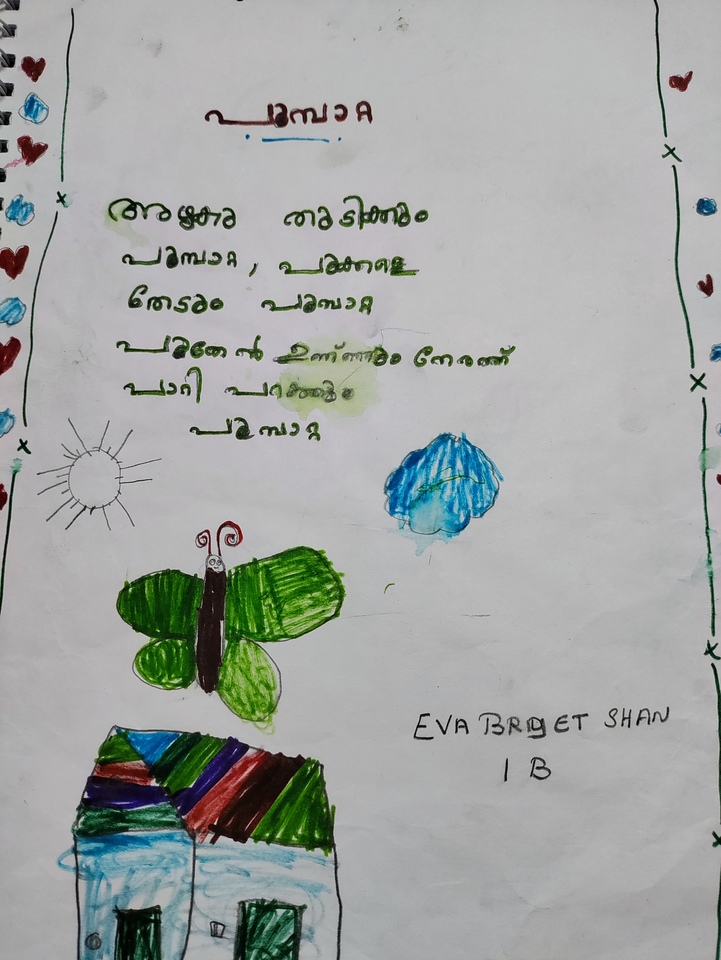 പൂമ്പാറ്റ
അഴകു തുടിക്കും
പൂമ്പാറ്റ, പൂക്കളെ
തേടും പൂമ്പാറ്റ
പൂതേൻ ഉണ്ണും നേരത്ത്
പാറി പറക്കും
പൂമ്പാറ്റ
EVA BRIDGET SHAN
I B